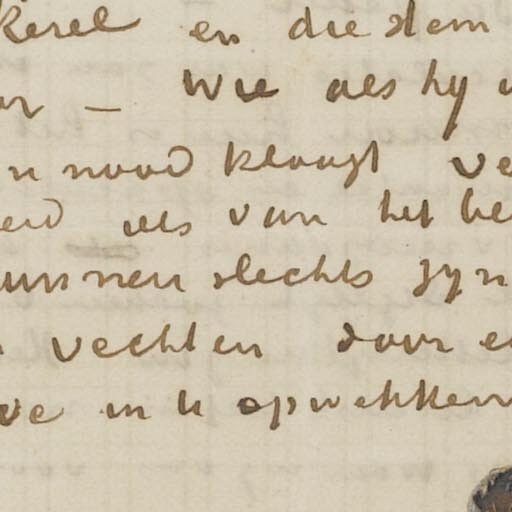 kerel en die stem
— Wie als hy
n nood klaagt ve
als van het be
unnen slechts zyn
vechten door e
ve in u opwekken